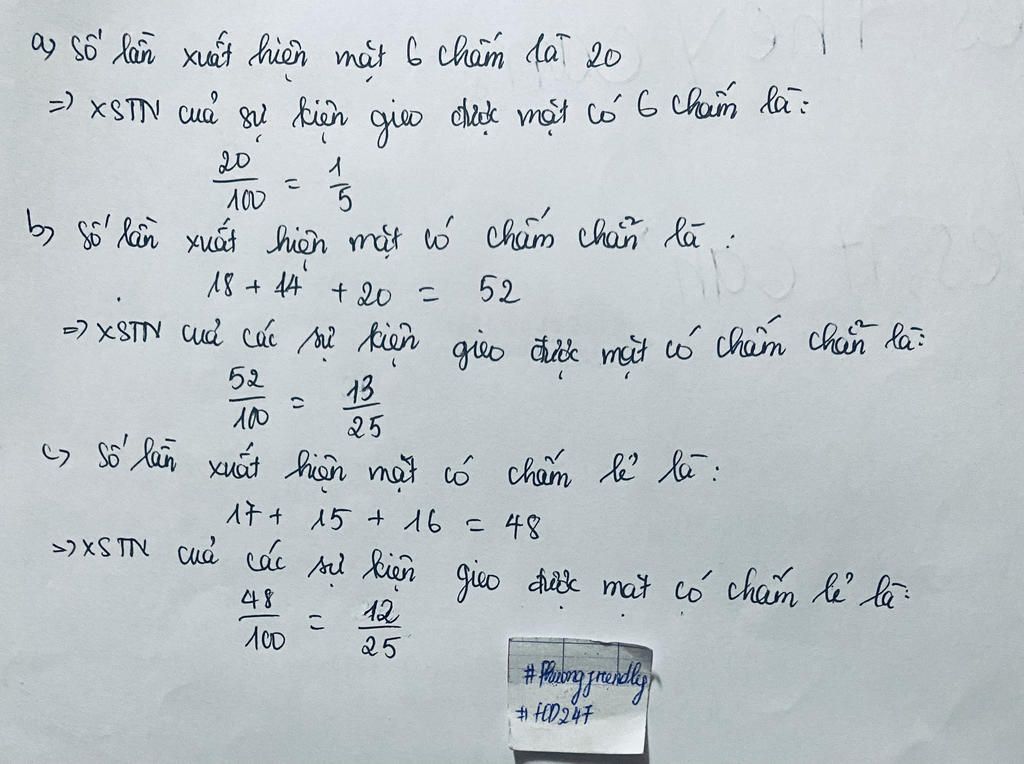 a) Số lần xuất hiện mặt 6 chấm là 20
=> XSTN cuả sự kiện gieo được mặt có 6 chấm là:
20/100 = 1/5
b) Số lần xuất hiện mặt có chấm chẵn là :
18 + 14 + 20 = 52
=> XSTN cuả các sự kiện gieo được mặt có chấm chẵn là:
52/100 = 13/25
c) Số lần xuất hiện mặt có chấm lẻ là:
17 + 15 + 16 = 48
=> XSTN cuả các sự kiện gieo được mặt có chấm lẻ là:
48/100 = 12/25
#Phuongfriendly
#HD247